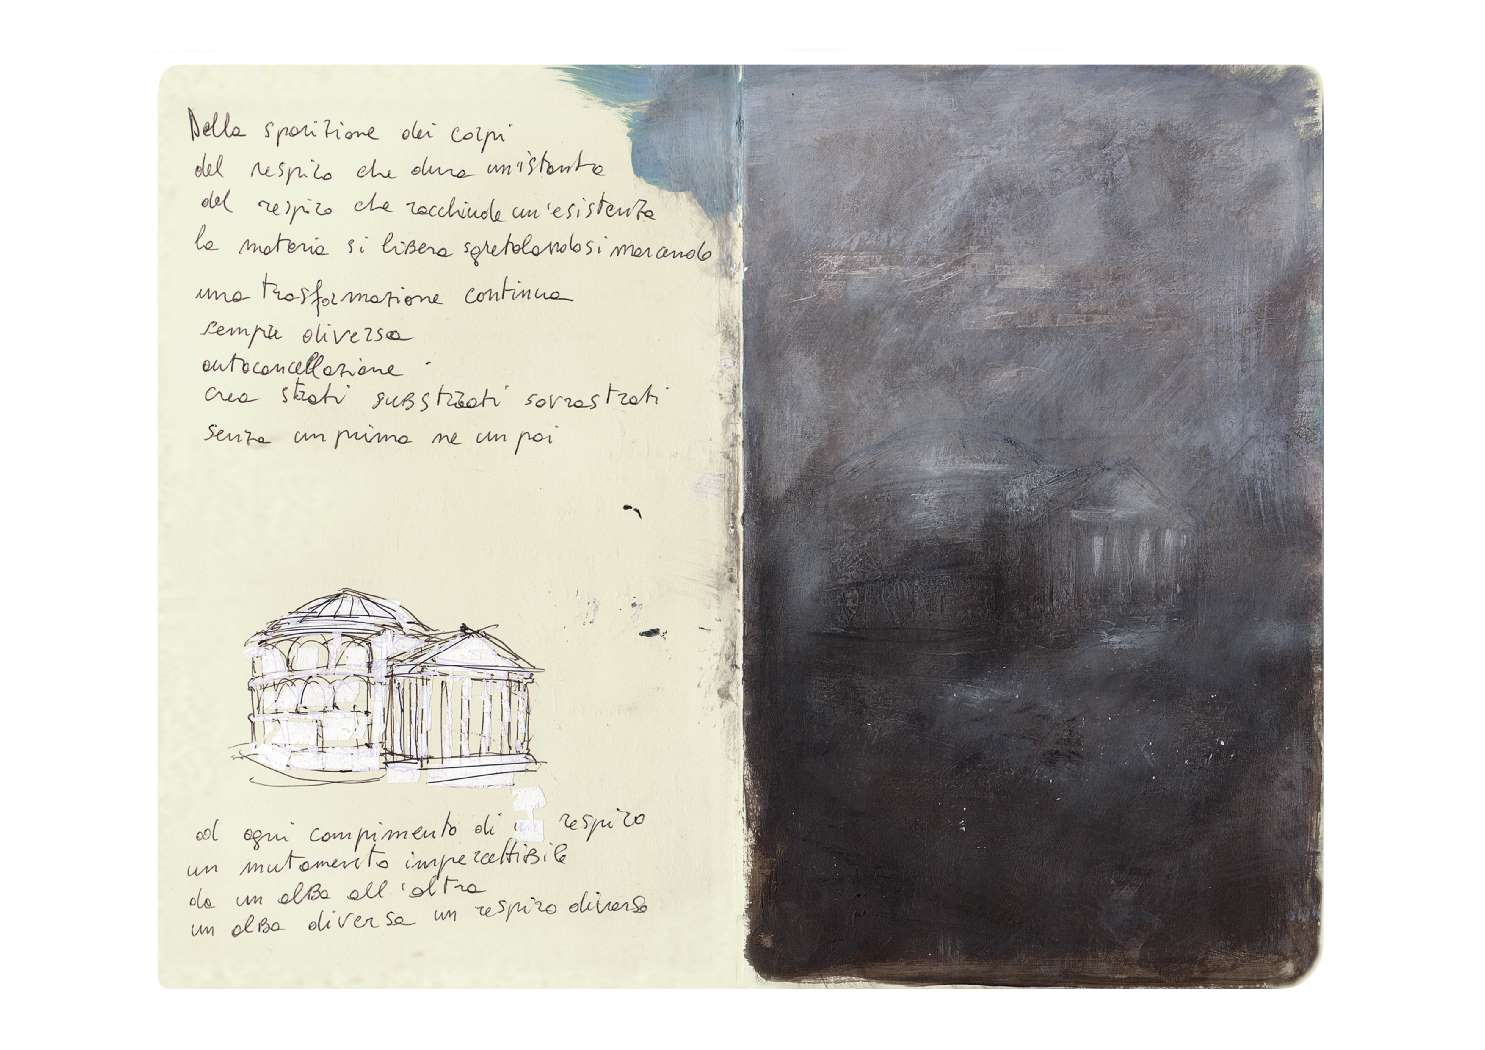 Della sparizione dei corpi
del respiro che dura un'istante
del respiro che racchiude un'esistenza
la materia si libera sgretolandosi marcando
una trasformazione continua
sempre diversa
autocancellazione
crea strati substrati sovrastrati
senza un prima ne un poi
ad ogni compimento di un respiro
un mutamento impercettibile
da un alba all'altra
un alba diversa un respiro diverso